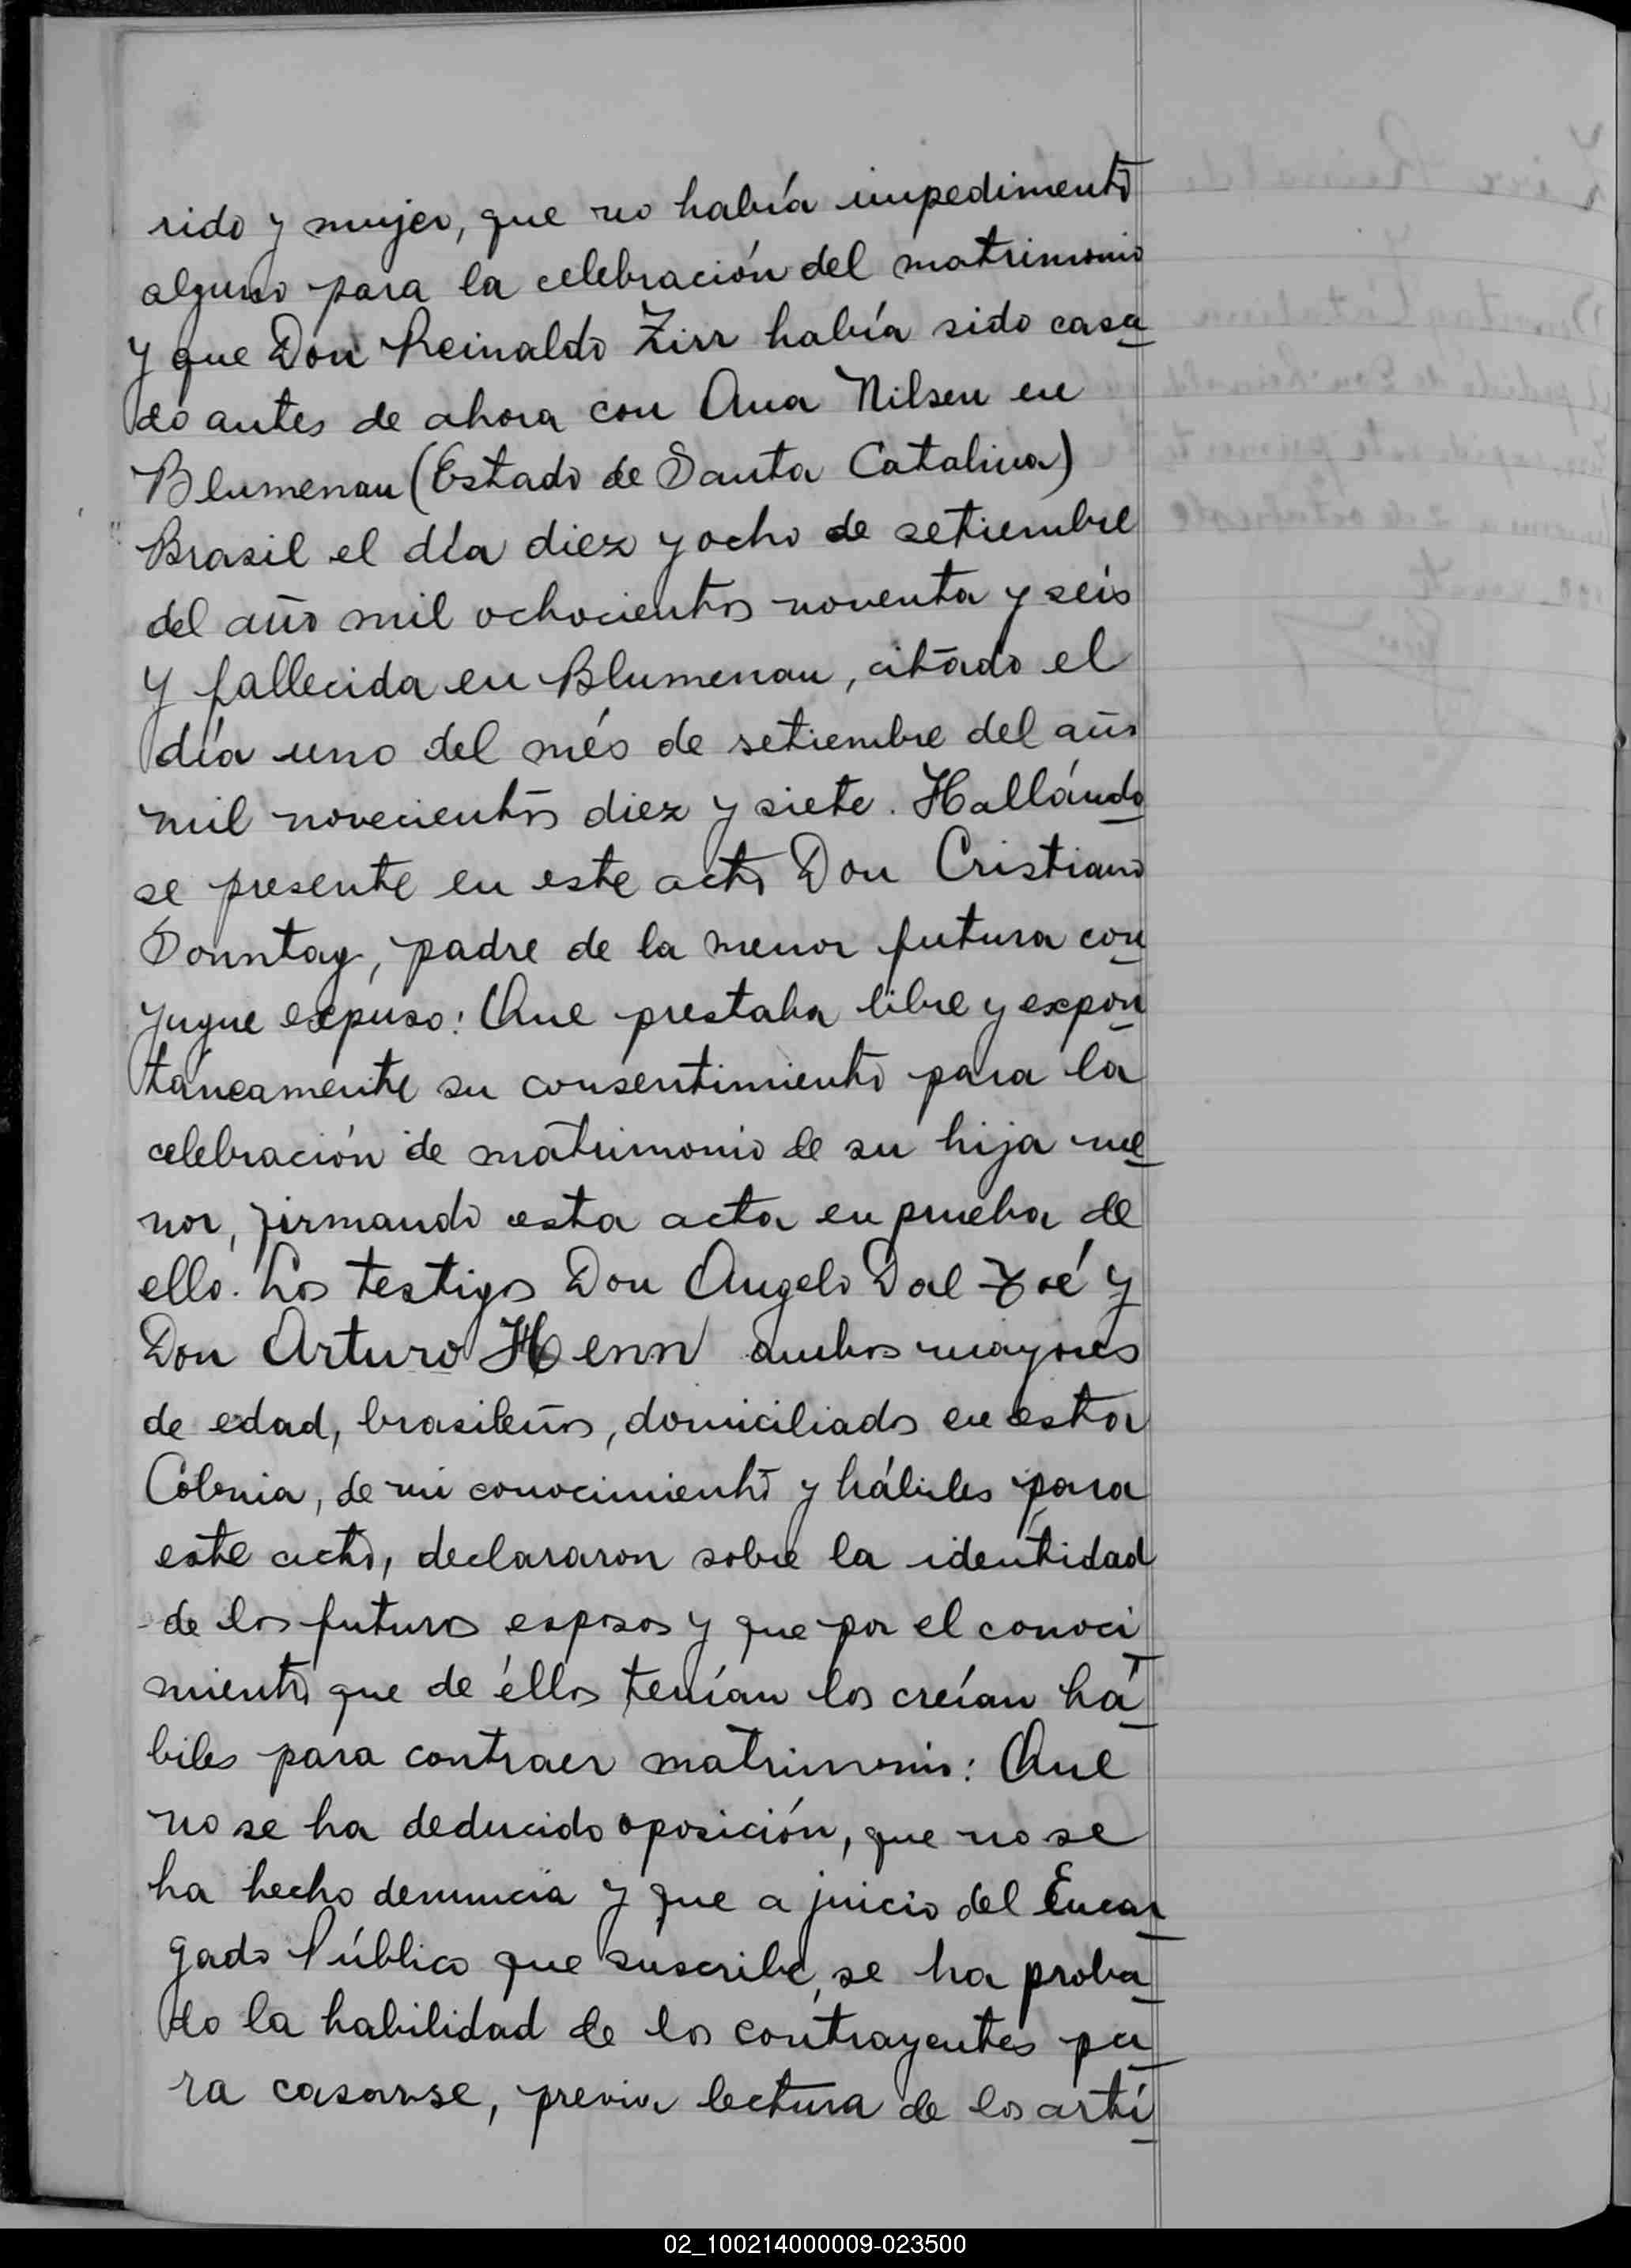 rido y mujer, que no había impedimento
alguno para la celebración del matrimonio
y que Don Reinaldo Zirr había sido casa
do antes de ahora con Ana Nilsen en
Blumenau (Estado de Santa Catalina)
Brasil el día diez y ocho de setiembre
del año mil ochocientos noventa y seis
y fallecida en Blumenau, citado el
día uno del més de setiembre del año
mil novecientos diez y siete. Hallándo
se presente en este acto Don Cristiano
Sonntag, padre de la menor futura con
yugue expuso: Que prestaba libre y expon
táneamente su consentimiento para la
celebración de matrimonio de su hija me
nor, firmando esta acta en prueba de
ello. Los testigos Don Angelo Dal y
Don Arturo Henn ambos mayores
de edad, brasileños, domiciliados en esta
Colonia, de mi conocimiento y hábiles para
este acto, declararon sobre la identidad
de los futuros esposos y que por el conoci
miento que de éllos tenían los creían há
biles para contraer matrimonio: Que
no se ha deducido oposición, que no se
ha hecho denuncia y que a juicio del Encar
gado Público que suscribe, se ha proba
do la habilidad de los contrayentes pa
ra casarse, previa lectura de los artí
02_100214000009-023500